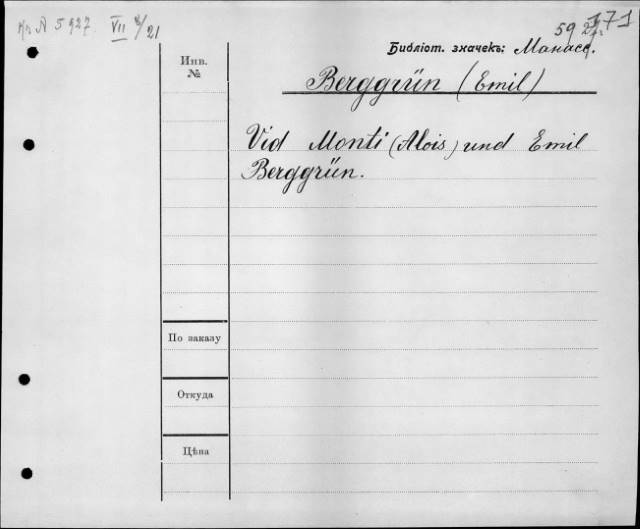 Кн № 5927. VII 2/21
59 27. 171
Библіот. значекъ: Манасс.
Инв.
№
Berggrün (Emil)
Vid Monti (Alois) und Emil
Berggrün.
По заказу
Откуда
Цѣна